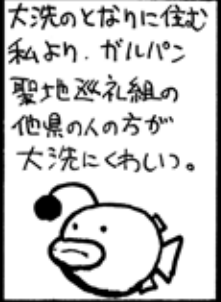 大洗のとなりに住む
私より、ガルパン
聖地巡礼組の
他県の人の方が
大洗にくわしいっ。